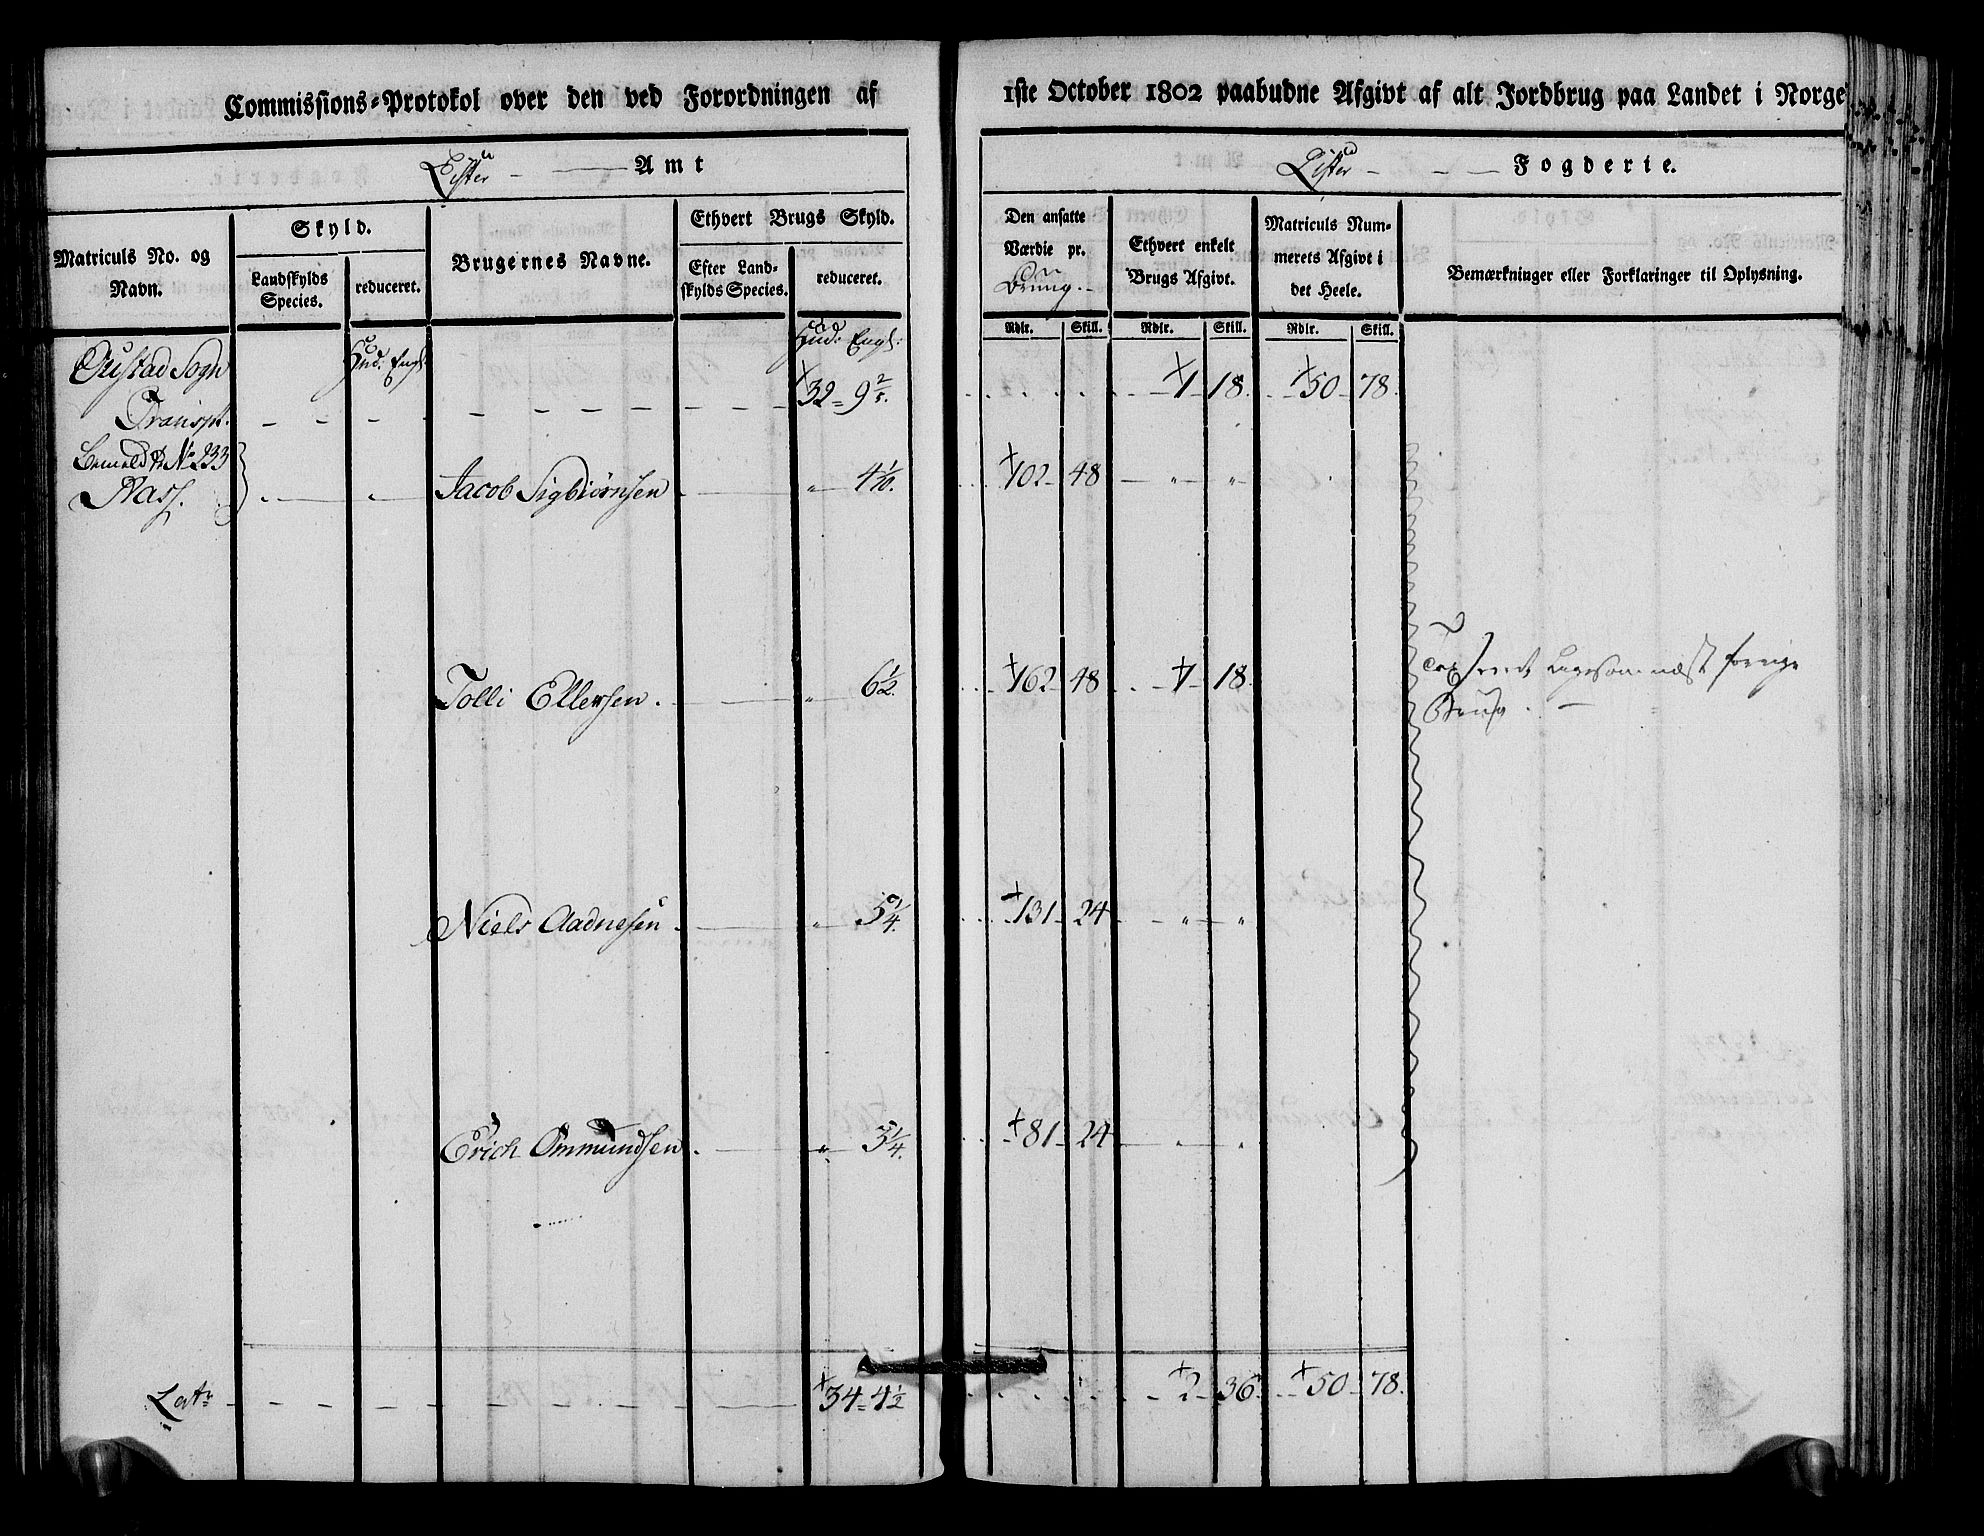 Commissions-Protokol over den ved Forordningen af 1ste October 1802 paabudne Afgivt af alt Jordbrug paa Landet i Norge
Lister Amt
Lister Fogderie.
Matriculs No. og Navn.
Skyld.
Landskylds Species.
reduceret.
Brugernes Navne.
Ethvert Brugs Skyld.
Efter Landskylds Species.
reduceret.
Den ansatte Værdie pr.
Ethvert enkelt Brugs Afgivt.
Matriculs Nummerets Afgivt i det Heele.
Bemærkninger eller Forklaringer til Oplysning.
Rdlr. Skill. Rdlr. Skill. Rdlr. Skill.
Hud. Engl. Hud. Engl:
Sogn
Transpt. 32 = 9 2/5. 1 18. 50 78.
Bemeldte No 233
Jacob Sigbiørnsen " 4 1/10. 102 48 " "
Tolli Ellersen. " 6 1/2. 162 48 1 18.
forrige
Brug.
Niels Aadnesen " 5 1/4. 131 24 " "
Erich Ommundsen " 3 1/4. 81 24 " "
Latr 34 = 4 1/2 2 36. 50 78.